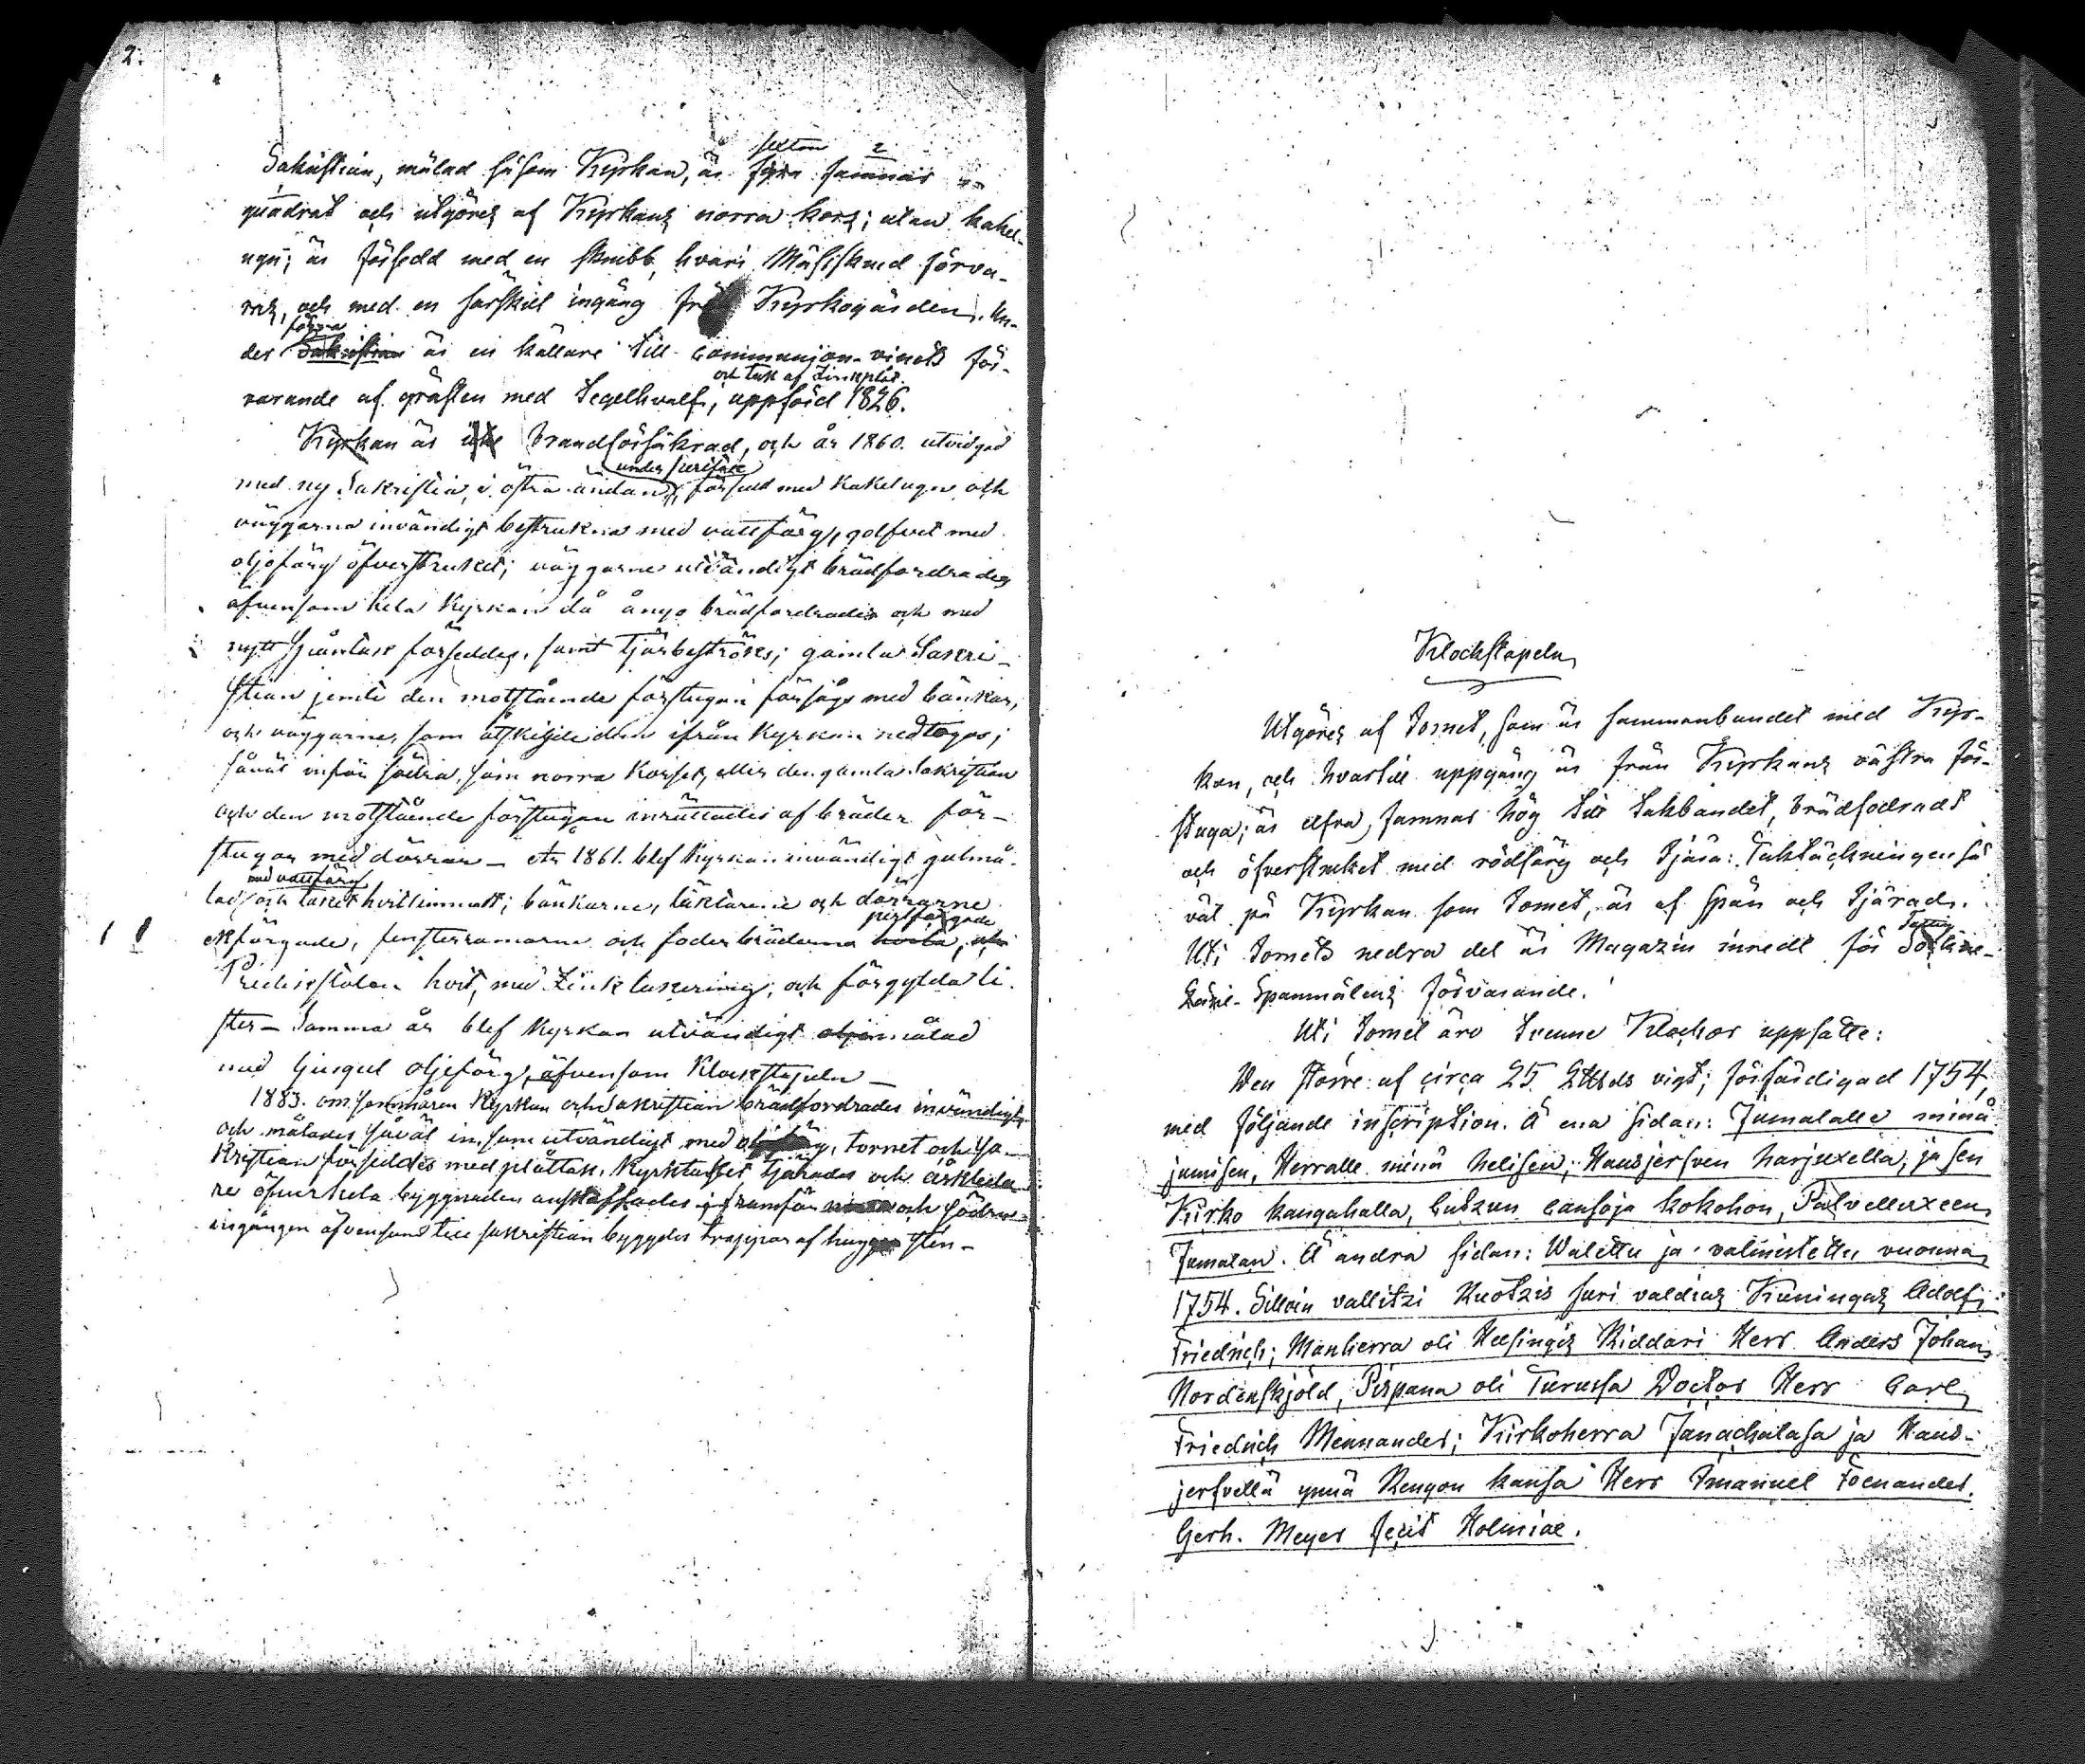 2.
sexton 2
Sakristian, målad såsom Kyrkan, är fyra famnar i
quadrat och utgöres af Kyrkans norra kors; utan kakel-
ugn; är försedd med en skrubb, hvari Mässskrud förva-
ras, och med en särskilt ingång från Kyrkogården. Un-
förra
der Sakristian är en källare till Communion-vinets för-
och tak af Zinkplåt.
varande af gråsten med Tegelhvalf, uppförd 1826.
Kyrkan är icke brandförsäkrad, och år 1860. utvidgad
med ny Sakristia, i östra ändan, försedd med kakelugn och
väggarna invändigt bestrukna med vattfärg, golfvet med
oljefärg öfverstruket; väggarne utvändigt brädfordrades
äfvensom hela Kyrkan då ånyo brädfordrades och med
nytt spåntak förseddes, samt tjärbeströks; gamla Sakri-
stian jemte den motstående förstugan försågs med bänkar,
och väggarne, som åtskiljde dem ifrån Kyrkan nedtogos;
såväl inför södra, som norra korset, eller den gamla Sakristian
och den motstående förstugan inrättades af bräder för-
stugor med dörrar – År 1861. blef Kyrkan invändigt gulmå-
med vattfärg
lad, och taket hvitlimmatt; bänkarne, läktarene och dörrarne
perlfärgade
ekfärgade, fensterramarna och foderbräderna hvita,
Predikstolen hvit, med Zink lasering, och förgyllda li-
ster – Samma år blef Kyrkan utvändigt oljemålad
med ljusgul oljefärg, äfvensom Klockstapeln –
1883. om sommaren Kyrkan och Sakristian brädfordrades invändigt
och målades såväl in som utvändigt med oljefärg, tornet och sa-
kristian förseddes med plåttak, Kyrktaket tjärades och åskleda-
re öfver hela byggnaden anskaffades; framför och södra
ingången äfvensom till sakristian byggdes trappor af huggen sten –
Klockstapeln
Utgöres af Tornet, som är sammanbundet med Kyr-
kan, och hvartill uppgång är från Kyrkans västra för-
stuga; är elfva famnar hög till Takbandet, brädfodradt
och öfverstruket med rödfärg och Tjära: Taktäckningen så
väl på Kyrkan som Tornet, är af Spån och Tjärad.
Uti Tornets nedra del är Magazin inredt för
Spanmålens förvarande.
Uti Tornet äro Tvenne Klockor uppsatte:
Den större af circa 25 vigt; förfärdigad 1754,
med följande inscription. Å ena sidan: Jumalalle minä
jumisen, Herralle minä helisen; Hausjerfven harjuxella, ja sen
Kirko kangahalla, Cutzun Cansoja kokohon, Palvelluxeen
Jumalan. Å andra sidan: Walettu ja valmistettu vuonna
1754. Silloin vallitzi Ruotzis suri valdias Kuningas Adolf
Friedrich; Manherra oli Helsingis Riddari Herr Anders Johan
Nordenskjöld, Pispana oli Turussa Doctor Herr Carl
Friedrich Mennander; Kirkoherra Janackalasa ja Haus-
jerfvellä ynnä Rengon kansa Herr Imanuel Foenander.
Gerh. Meyer fecit Holmiae.